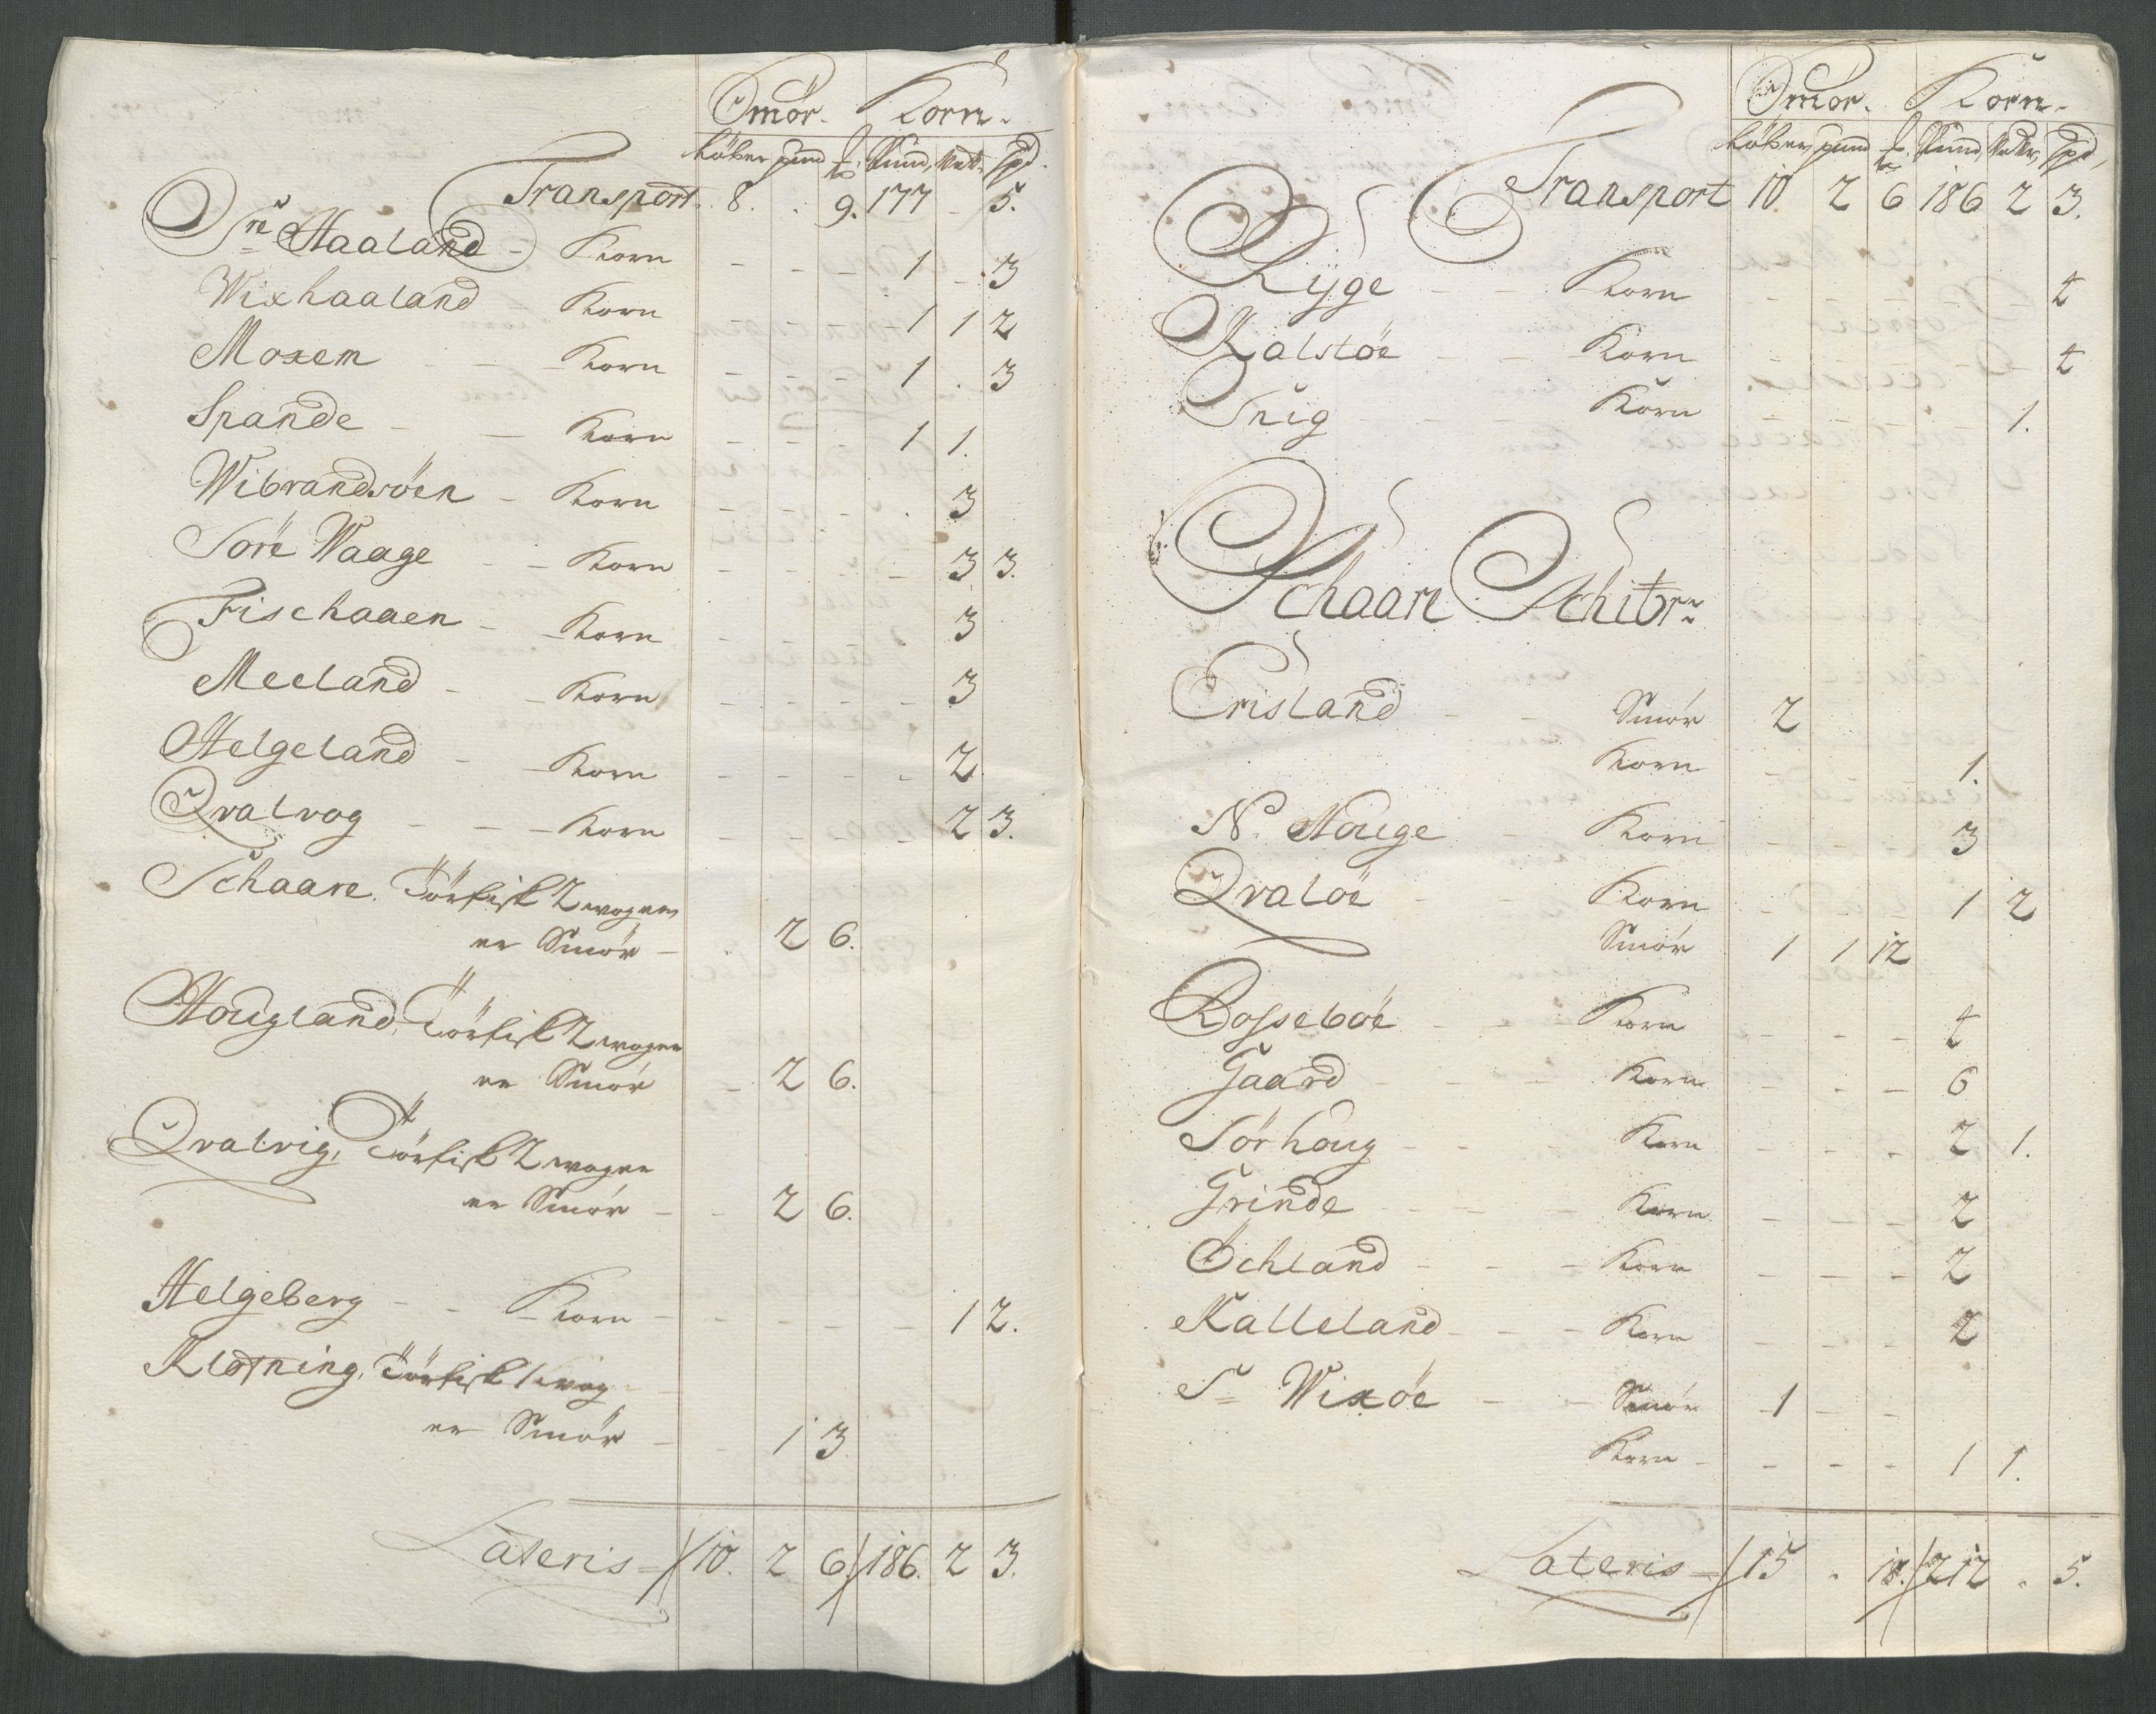 Smör. Korn.
Löber pund ℔ Pund, Vett Spd.
Transport. 8. . 9. 177 – 5.
Sr Haaland – Korn – – – 1 – 3
Wixhaaland – Korn – – – 1 1 2
Moxem – – Korn – – – 1 . 3
Spande – – Korn – – – 1 1.
Wibrandsöen – Korn – – – . 3
Söre Waage – – Korn – – – – 3 3.
Fischaaen – – Korn – – – – 3
Meeland – – Korn – – – – – 3
Helgeland – – Korn – – – – – 2.
Qvalvog – – – Korn – – – – 2 3.
Schaare. Törfisk 2 wogner
er Smör – . 2 6.
Hougland, Törfisk 2 wogner
er Smör – 2 6.
Qvalvig, Törfisk 2 wogner
er Smör – – 2 6.
Helgeberg – – Korn – – – – – 1 2.
Klofning, Törfisk 1 wog
er Smör – – 1 3
Lateris = 10. 2 6. 186. 2 3.
Smör. Korn.
Löber, pund ℔ Pund, Vetter, Spd,
Transport 10. 2 6 186 2 3.
Ryge – – Korn – – – – – 4
Kalstöe – – Korn – – – – 4
Snig – – Korn – – – – 1.
Schaare Schibr:
Erisland – – Smör 2
Korn – – – 1.
N. Houge – Korn – – – 3
Qvalöe – – Korn – – – 1 2
Smör 1 1 12
Bosseböe – – Korn – – – 4
Gaard – – – Korn – – – 6
Sörhoug – – – Korn – – – 2 1.
Grinde – – – Korn – – – 2
Öchland – – – Korn – – – 2
Kalleland – – – Korn – – – 2
S= Wixöe – – Smör 1 – –
Korn – – – – 1 1.
Lateris = 15 . 18. 212 . 5.